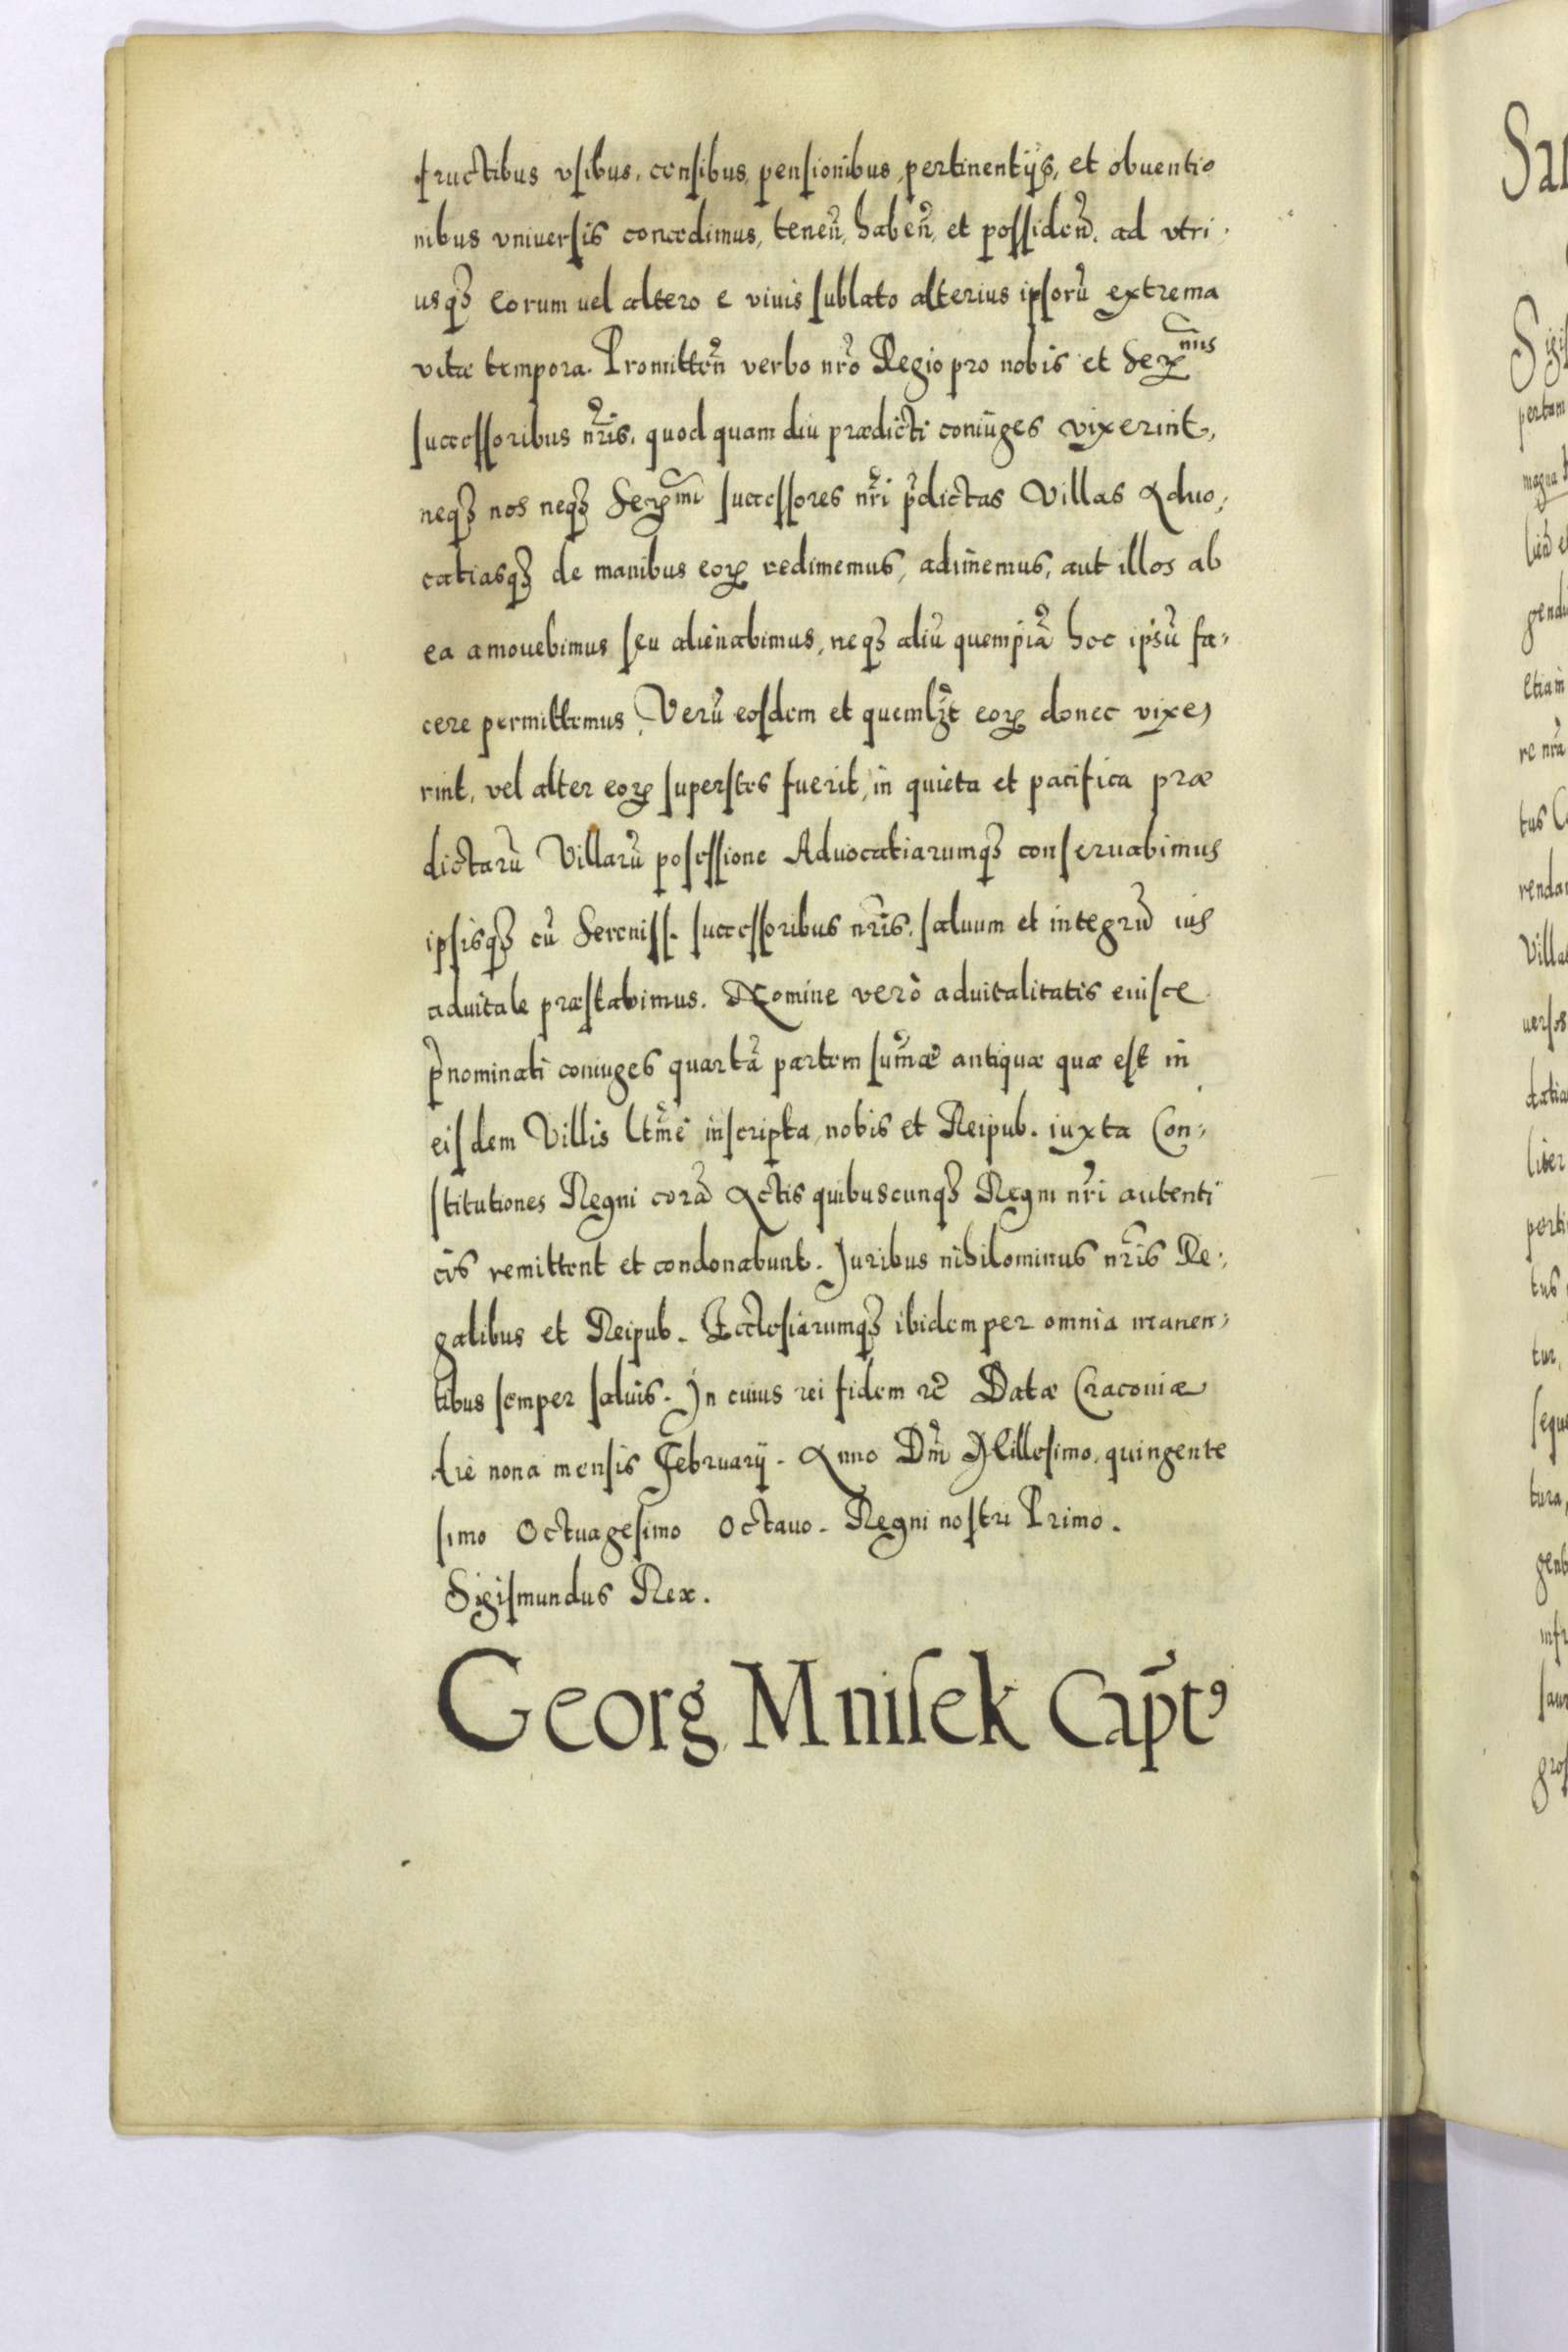 fructibus vsibus, censibus, pensionibus, pertinentijs, et obuentio
nibus vniuersis concedimus, teneñ, habeñ, et possideñ. ad vtri,
usq₃ eorum uel altero e viuis sublato alterius ipsorũ extrema
vitæ tempora. Promitteñ verbo nr̃o Regio pro nobis et Serꝫ^mis
successoribus nr̃is, quod quam diu prædicti coniuges vixerint,
neq₃ nos neq₃ Serꝫ^mi successores nr̃i p̃dictas Villas Aduo,
catiasq₃ de manibus eoꝝ redimemus, adimemus, aut illos ab
ea amouebimus seu alienabimus, neq₃ aliũ quempiã hoc ipsũ fa,
cere permittemus, Verũ eosdem et quemlꝫt eoꝝ donec vixe,
rint, vel alter eoꝝ superstes fuerit, in quieta et pacifica præ
dictarũ Villarũ posessione Aduocatiarumq₃ conseruabimus
ipsisq₃ cũ Sereniss. successoribus nr̃is, saluum et integrũ ius
aduitale præstabimus. Nomine verò aduitalitatis euisce
p̃nominati coniuges quartã partem sum̃æ antiquæ quæ est in
eisdem Villis ltm̃e inscripta, nobis et Reipub. iuxta Con,
stitutiones Regni corã Actis quibuscunq₃ Regni nr̃i autenti
cis remittent et condonabunt. Juribus nihilominus nr̃is Re,
galibus et Reipub. Ecclesiarumq₃ ibidem per omnia manen,
tibus semper saluis. In cuius rei fidem rc̃ Datæ Cracouiæ
die nona mensis February. Anno Dm̃ Millesimo, quingente
simo Octuagesimo Octauo. Regni nostri Primo.
Sigismundus Rex.
Georg, Mnisek Cap̃t⁹